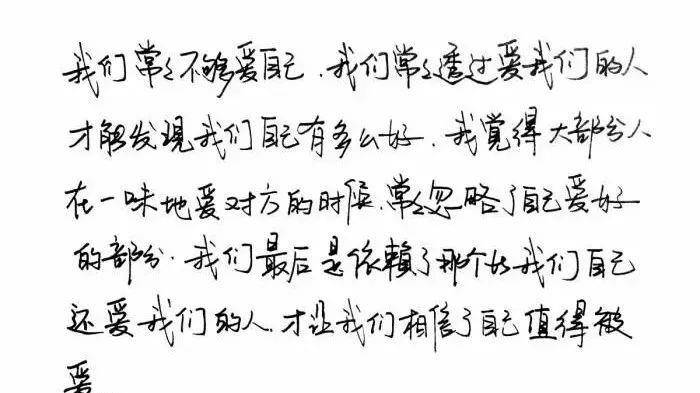 我们常々不够爱自己.我们常々透过爱我们的人
才能发现我们自己有多么好.我觉得大部分人
在一味地爱对方的时候.常々忽略了自己爱好
的部分.我们最后是依赖了那个比我们自己
还爱我们的人.才让我们相信了自己值得被
爱.